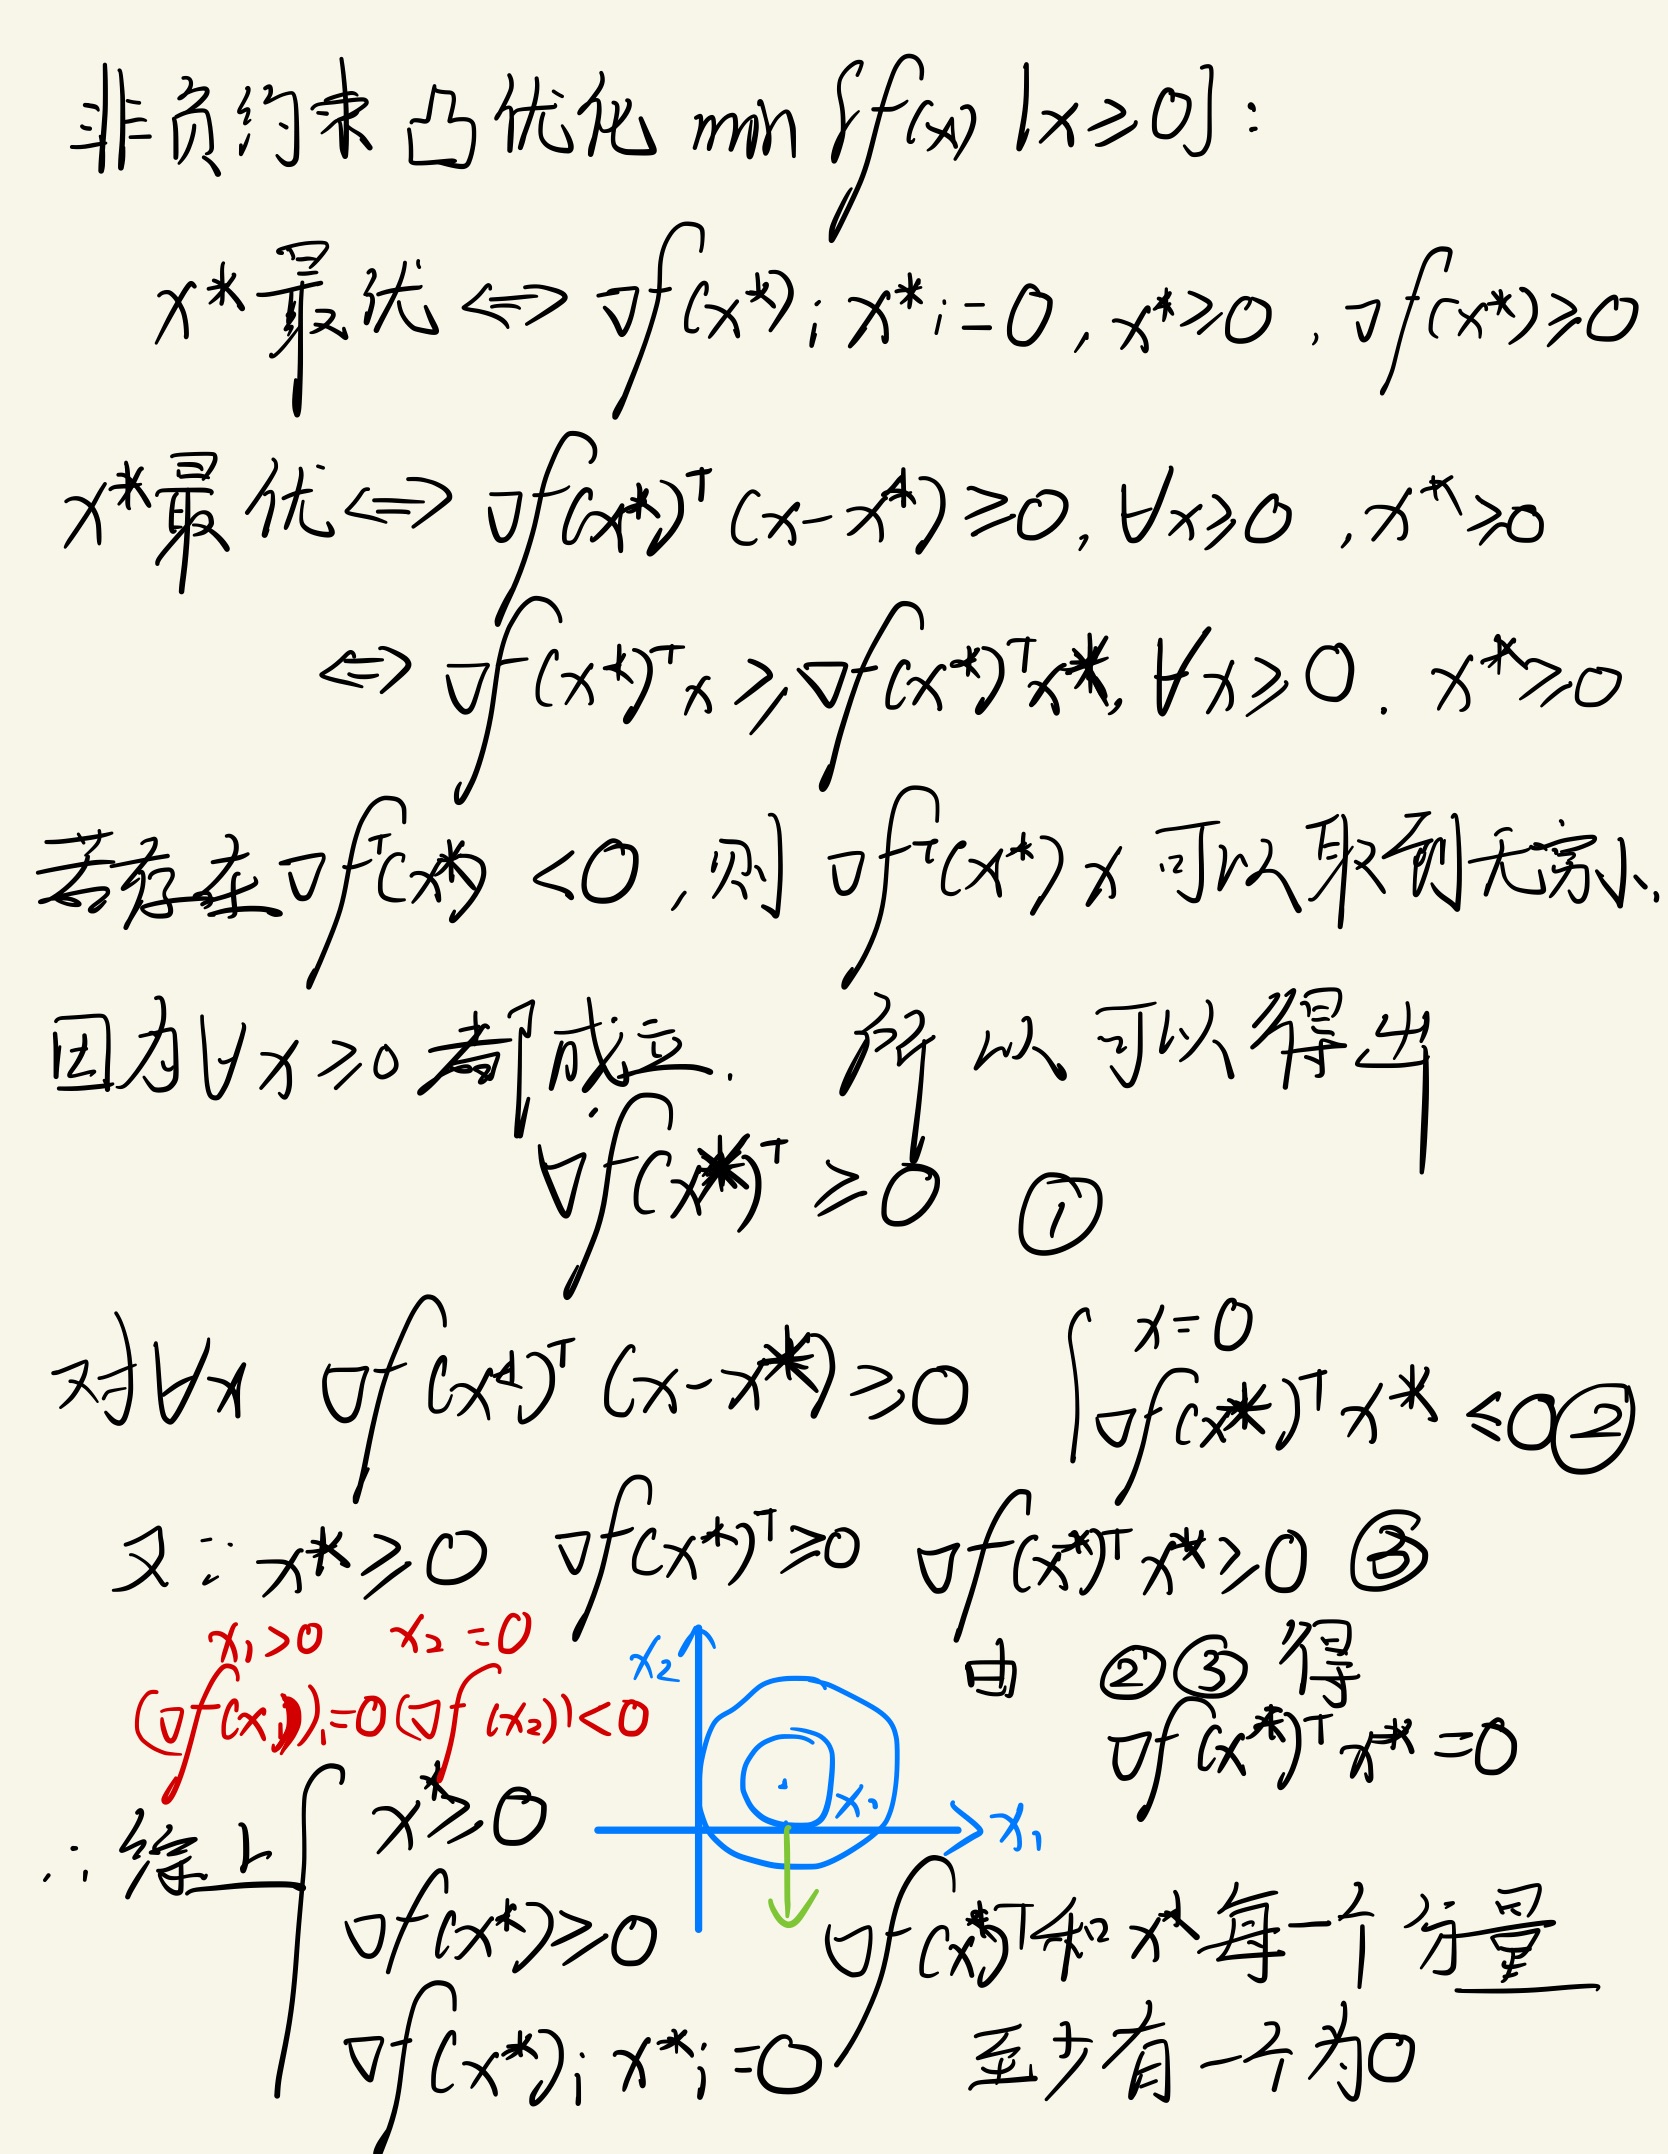 非负约束凸优化 min{f(x) | x≥0}:
x*最优 <=> ∇f(x*)ᵢ x*ᵢ=0, x*≥0, ∇f(x*)≥0
x*最优 <=> ∇f(x*)ᵀ(x-x*)≥0, ∀x≥0, x*≥0
<=> ∇f(x*)ᵀx ≥ ∇f(x*)ᵀx*, ∀x≥0. x*≥0
若存在∇fᵀ(x*)<0, 则 ∇fᵀ(x*)x 可以取到无穷小,
因为∀x≥0 都成立. 所以可以得出
∇f(x*)ᵀ ≥0 ①
对∀x ∇f(x*)ᵀ(x-x*)≥0 { x=0
∇f(x*)ᵀx* ≤0 ②
又∵ x*≥0 ∇f(x*)ᵀ≥0 ∇f(x*)ᵀx*≥0 ③
x₁>0 x₂=0
(∇f(x₁))₁=0 (∇f(x₂))<0
x₂
x₁
x₁
由 ②③得
∇f(x*)ᵀx*=0
∴综上 { x*≥0
∇f(x*)≥0
∇f(x*)ᵢ x*ᵢ=0
∇f(x*)ᵀ和x*每一个分量
至少有一个为0